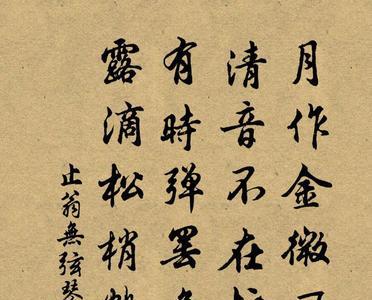 月作金徽
清音不在
有時弹罢
露滴松梢
止翁無弦琴